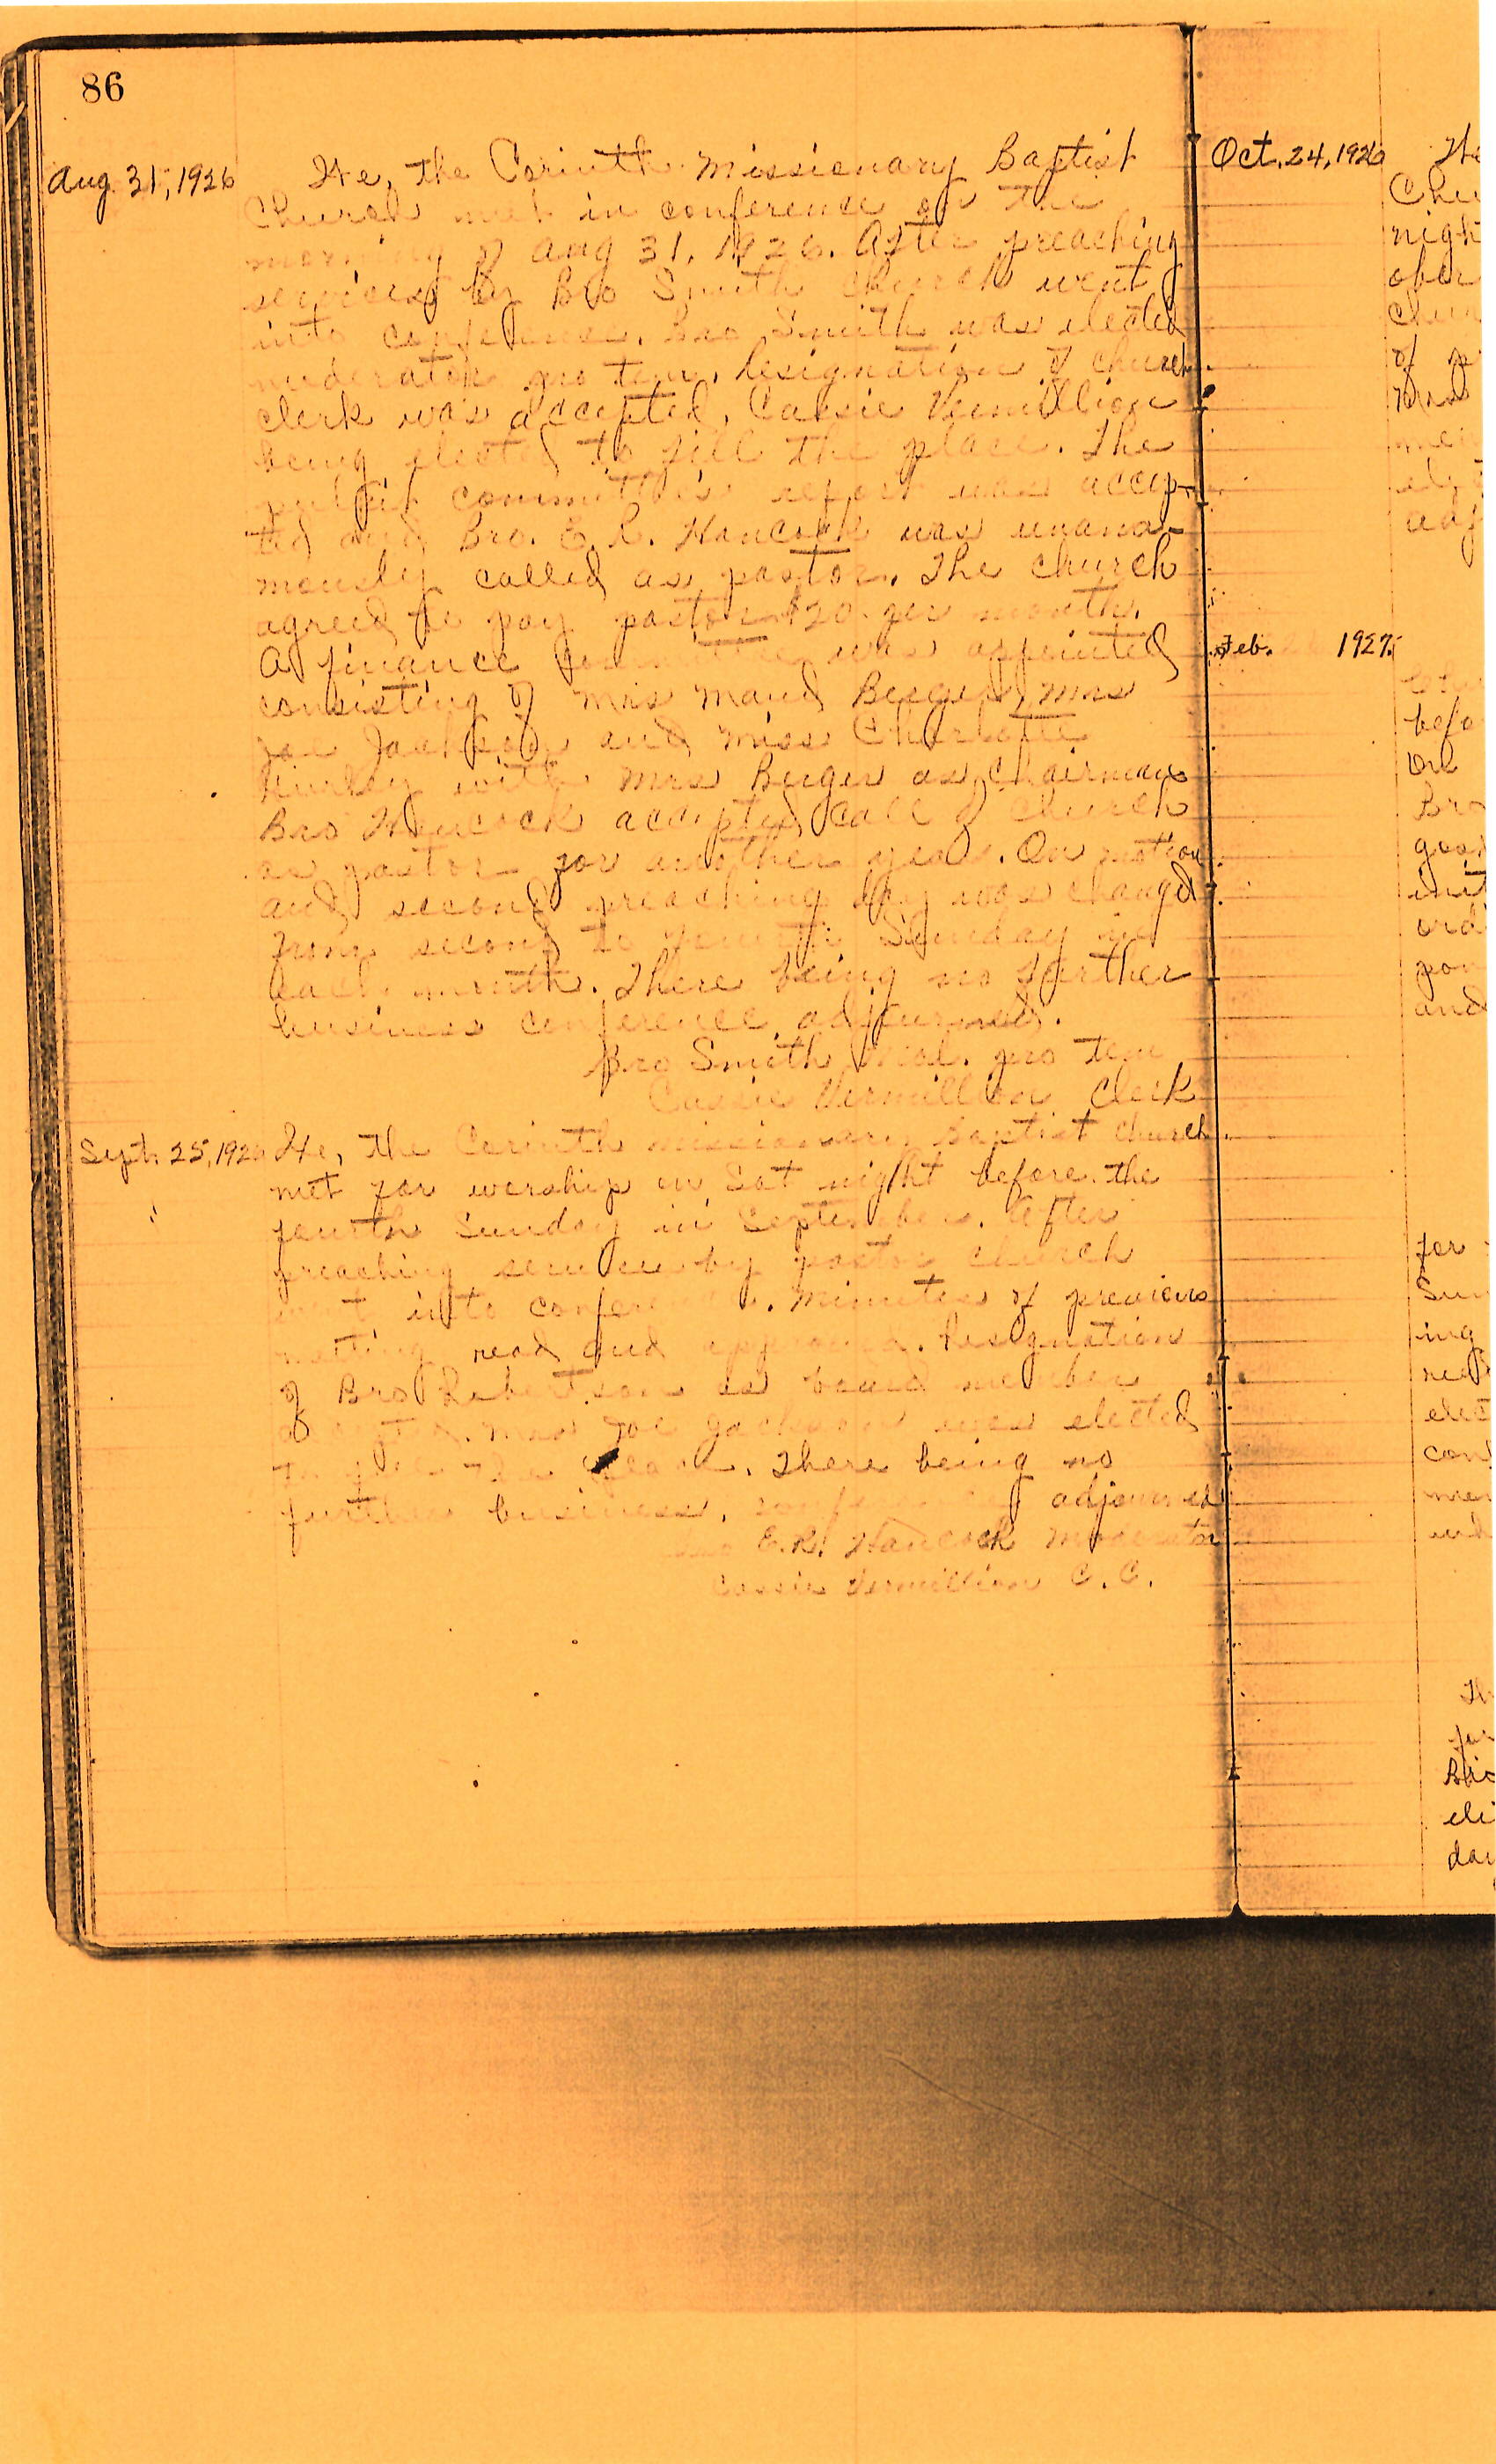 86
Aug. 31, 1926
We, the Corinth Missionary Baptist
Church met in conference on the
morning of Aug 31, 1926. After preaching
services by Bro Smith church went
into conference. Bro Smith was elected
moderator pro tem. Resignation of church
clerk was accepted, Cassie Vermillion
being elected to fill the place. The
pulpit committee's report was accep-
ted and Bro. E. R. Hancock was unana-
mously called as pastor. The church
agreed to pay pastor $20. per month.
A finance committee was appointed
consisting of Mrs Maud Berger, Mrs
Joe Jackson and Miss Charlotte
with Mrs Berger as chairman
Bro Hancock accepted call of church
as pastor for another year. On motion
and second preaching day was changed
from second to fourth Sunday in
each month. There being no further
business conference adjourned.
Bro Smith Mod. pro tem
Cassie Vermillion Clerk
Sept. 25, 1926
We, the Corinth Missionary Baptist Church
met for worship on Sat night before the
fourth Sunday in September. After
preaching service by pastor church
went into conference. Minutes of previous
meeting read and approved. Resignation
of Bro Robertson as board member
accepted. Mrs Joe Jackson was elected
to fill the place. There being no
further business, conference adjourned
Bro E.R. Hancock Moderator
Cassie Vermillion C. C.
Oct. 24, 1926
We
Chu
nigh
ober
chur
of p
adj
Feb. 1927.
befo
On
Bro
ord
and
for
Sun
ing
elec
con
Th
for
Bro
ele
day